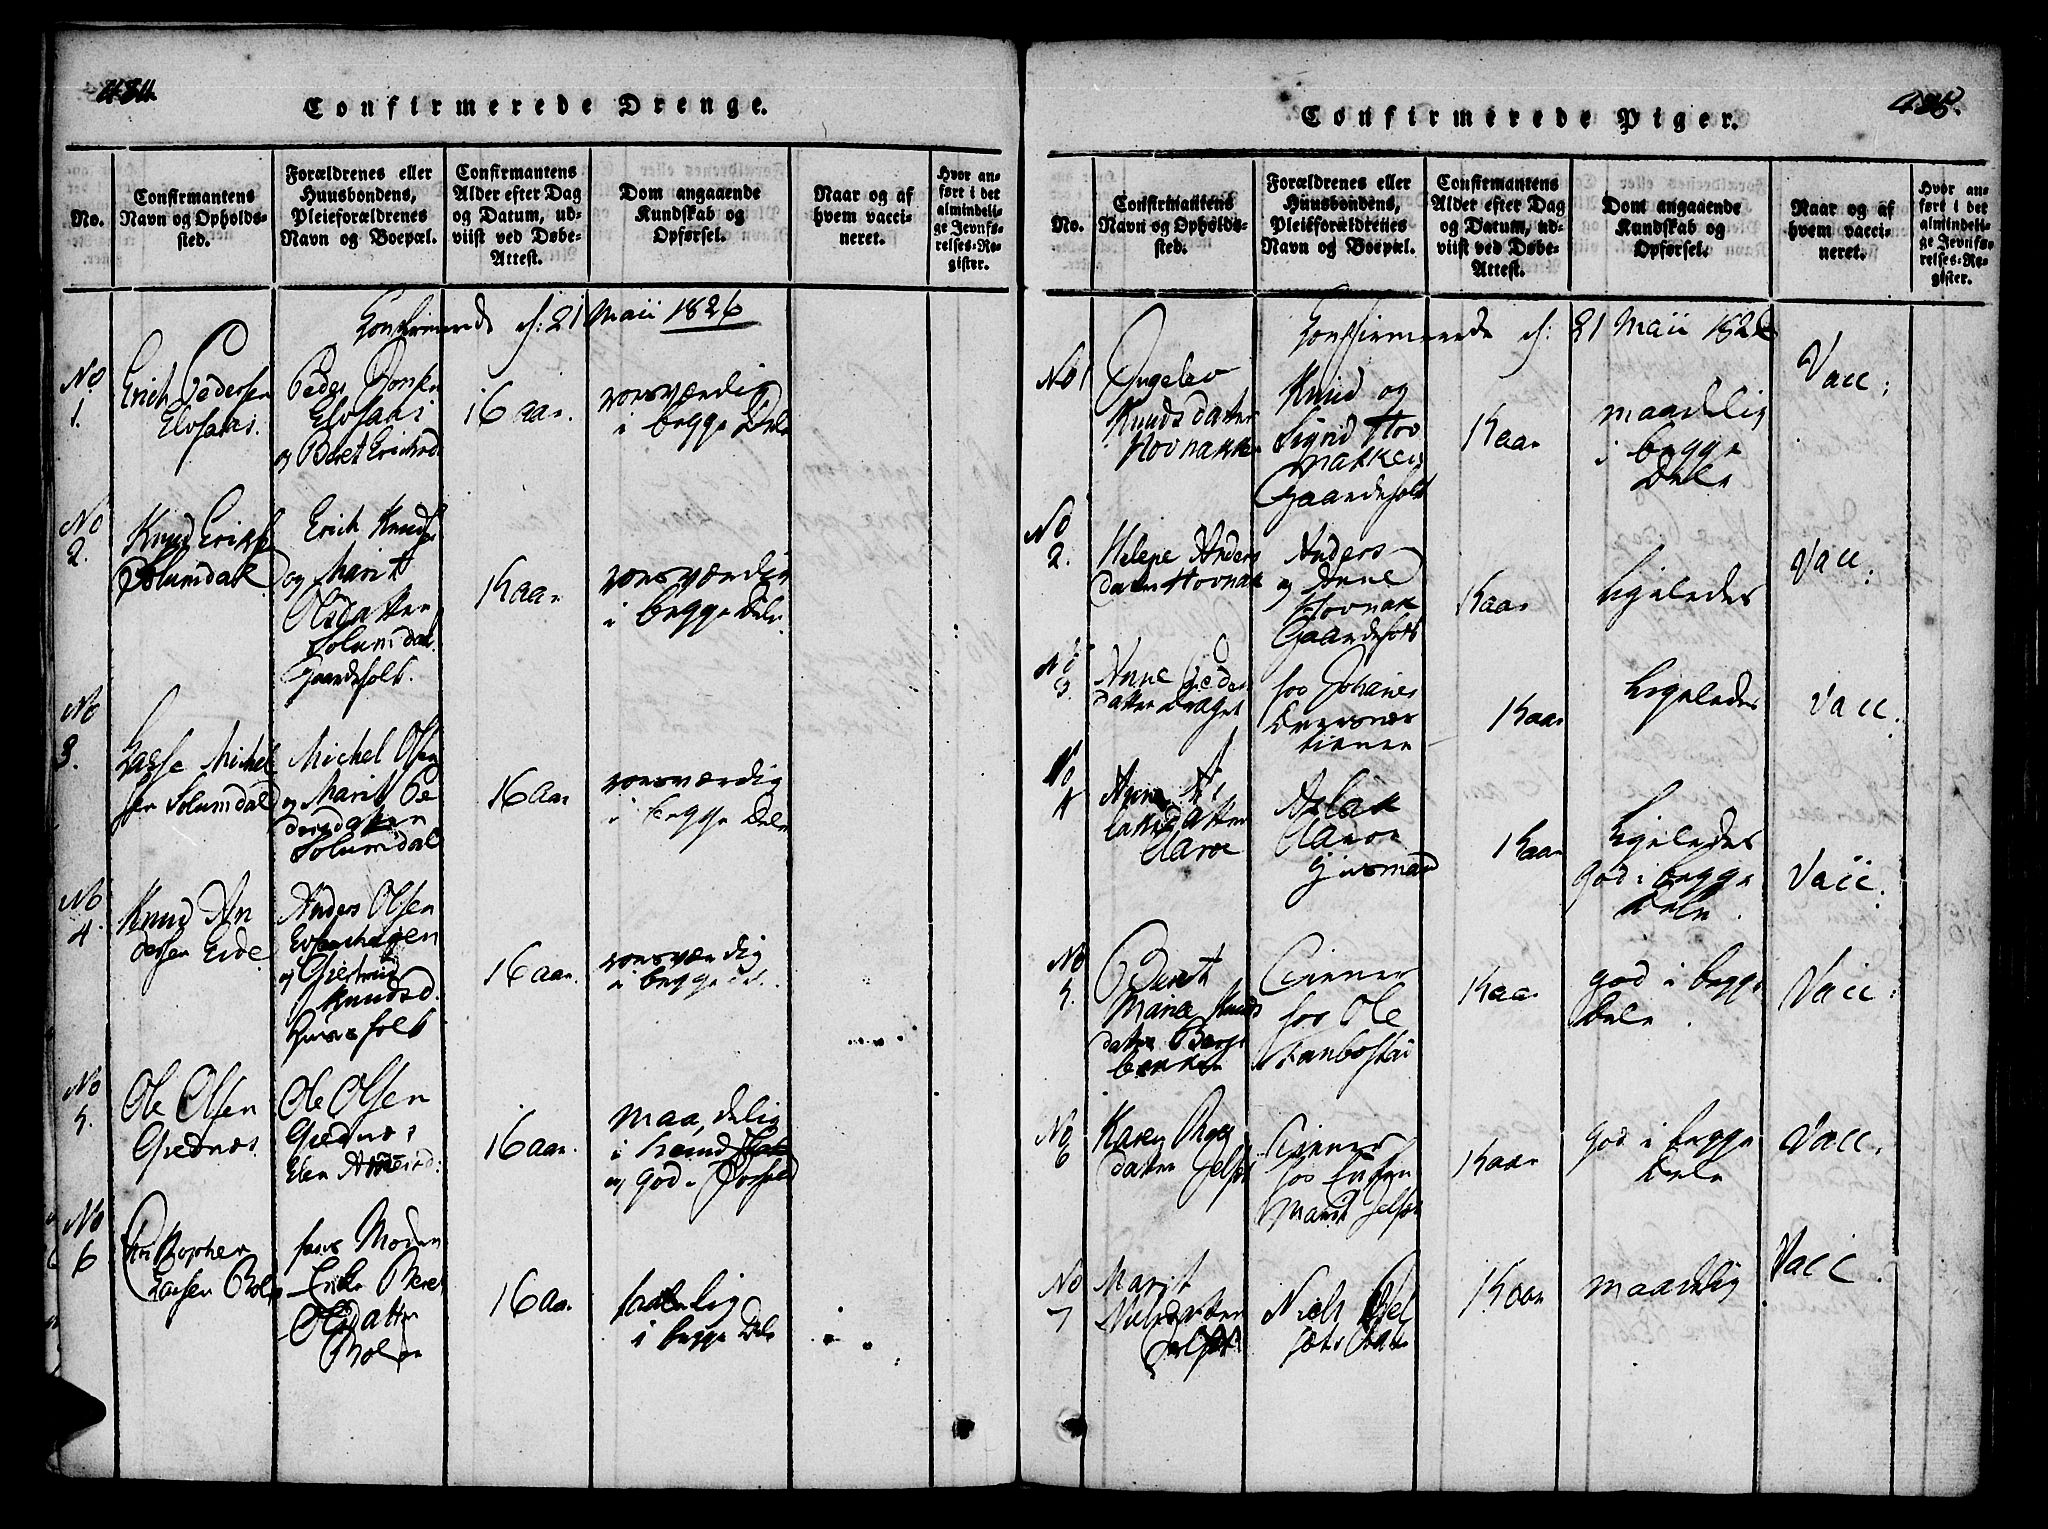 434.
Confirmerede Drenge.
No.
Confirmantens
Navn og Opholds-
sted.
Forældrenes eller
Huusbondens,
Pleieforældrenes
Navn og Boepæl.
Confirmantens
Alder efter Dag
og Datum, ud-
viist ved Døbe-
Attest.
Dom angaaende
Kundskab og
Opførsel.
Naar og af
hvem vacci-
neret.
Hvor an-
ført i det
almindeli-
ge Jevnfø-
relses-Re-
gister.
Confirmerede d: 21 Maii 1826
No
1.
Erich Pedersen
Elvsaas.
Peder Jonsen
Elvsaas
og Beret Erichsd
16 aar.
roesværdig
i begge Dele
No
2.
Knud Eriks
Solumdak
Erich Knuds
og Marit
Olsdatter
Solumdal
Gaardefolk.
16 aar
roesværdig
i begge Dele.
No
3.
Lasse Michel
sen Solumdal
Michel Olsen
og Marit Pe
dersdatter
Solumdal
16 aar
roesværdig
i begge Dele
No
4.
Knud An
dersen Eide
Anders Olsen
og
Knudsd.
Huusfolk
16 aar.
roesværdig
i begge D.
No
5.
Ole Olsen
Grednæs.
Ole Olsen
Grednæs
16 aar.
maadelig
i Kundskab
og god i Forhold
No
6
Christopher
Larsen Bols
hans Moder
Enke Beret
Olsdatter
Bols
16 aar.
i begge Dele
435.
Confirmerede Piger.
No.
Confirmantens
Navn og Opholds-
sted.
Forældrenes eller
Huusbondens,
Pleieforældrenes
Navn og Boepæl.
Confirmantens
Alder efter Dag
og Datum, ud-
viist ved Døbe-
Attest.
Dom angaaende
Kundskab og
Opførsel.
Naar og af
hvem vacci-
neret.
Hvor an-
ført i det
almindeli-
ge Jevnfø-
relses-Re-
gister.
Confirmerede d: 21 Maii 1826
No 1
Ingelev
Knudsdatter
Hovnakke
Knud og
Sigrid Hov
nakken
Gaardefolk
16 aar
maadelig
i begge
Dele
Vacc.
No
2.
Helene Anders
datter Hovnak
Anders
og Anne
Hovnak
Gaardefolk
16 aar
ligeledes
Vacc.
No
3.
Anne Peders
datter Draget
hos Johanes
tienen
16 aar
ligeledes
Vacc.
No
4
laksdatter
Aslak
16 aar
ligeledes
god i begge
Dele.
Vacc.
No
5.
Beret
Marie Knuds
datter Berg
Tiener
hos Ole
16 aar
god i begge
Dele.
Vacc.
No
6
Karen
datter Jelset
Tiener
hos Enken
Marit Jelset
16 aar
god i begge
Dele
Vacc.
No
7
Marit
Nielsdatter
Jelset
Niels Jel
16 aar
maadelig
Vacc.